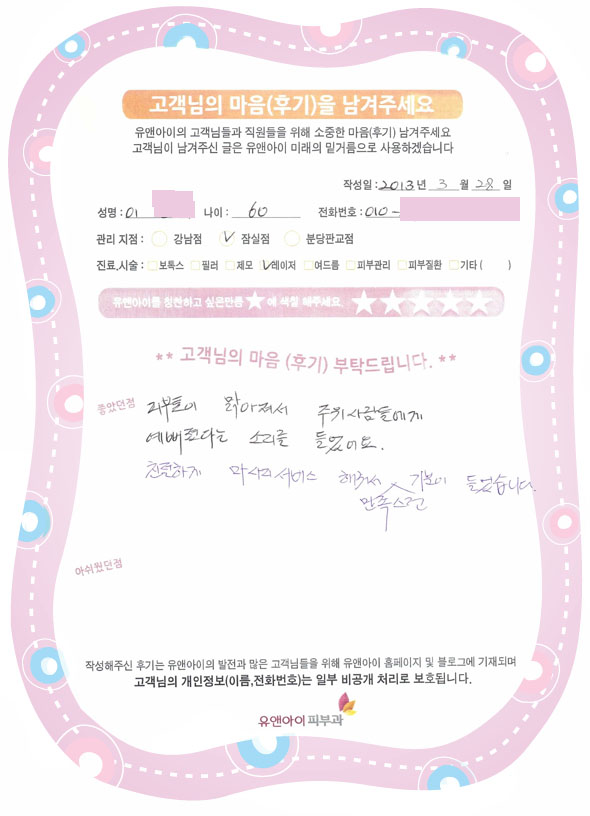 고객님의 마음(후기)을 남겨주세요
유앤아이의 고객님들과 직원들을 위해 소중한 마음(후기) 남겨주세요
고객님이 남겨주신 글은 유앤아이 미래의 밑거름으로 사용하겠습니다
작성일 : 2013 년 3 월 28 일
성명 : 이 나이 : 60 전화번호 : 010 -
관리 지점 : 강남점 ✓ 잠실점 분당판교점
진료,시술 : 보톡스 필러 제모 ✓레이저 여드름 피부관리 피부질환 기타 ( )
유앤아이를 칭찬하고 싶은만큼 ★ 에 색칠 해주세요 ★★★★★
** 고객님의 마음 (후기) 부탁드립니다. **
좋았던점
피부톤이 맑아져서 주위사람들에게
예뻐졌다는 소리를 들었어요.
친절하게 마사지 서비스 해줘서 기분이 들었습니다.
만족스런
아쉬웠던점
작성해주신 후기는 유앤아이의 발전과 많은 고객님들을 위해 유앤아이 홈페이지 및 블로그에 기재되며
고객님의 개인정보(이름,전화번호)는 일부 비공개 처리로 보호됩니다.
유앤아이 피부과